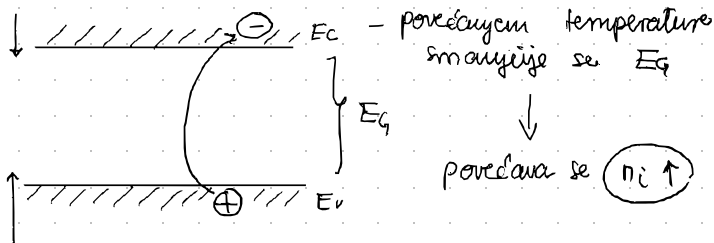 ⊖ Ec - povećanjem temperature
smanjuje se EG
EG
↓
povećava se ni ↑
⊕ Ev